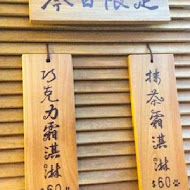 本日限定
抹茶霜淇淋
$60
巧克力霜淇淋
$60